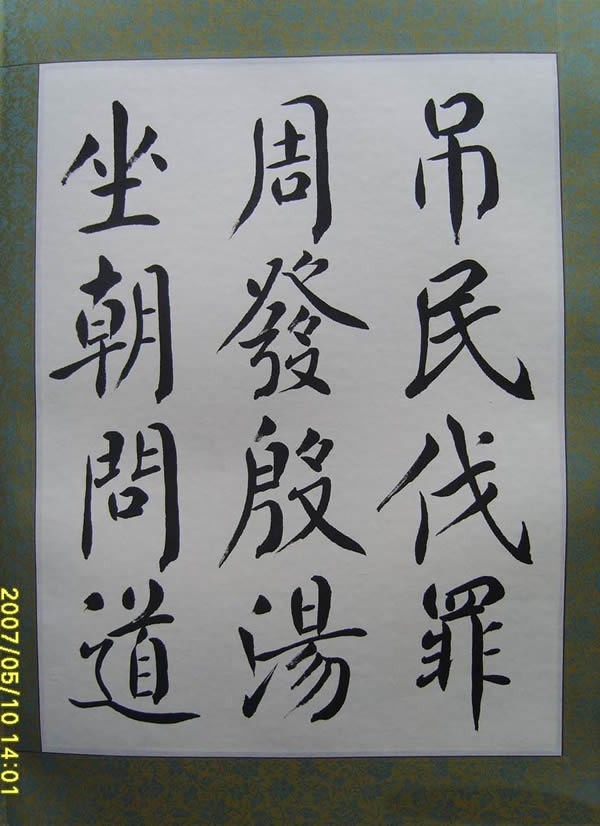 吊民伐罪
周發殷湯
坐朝問道
2007/05/10 14:01